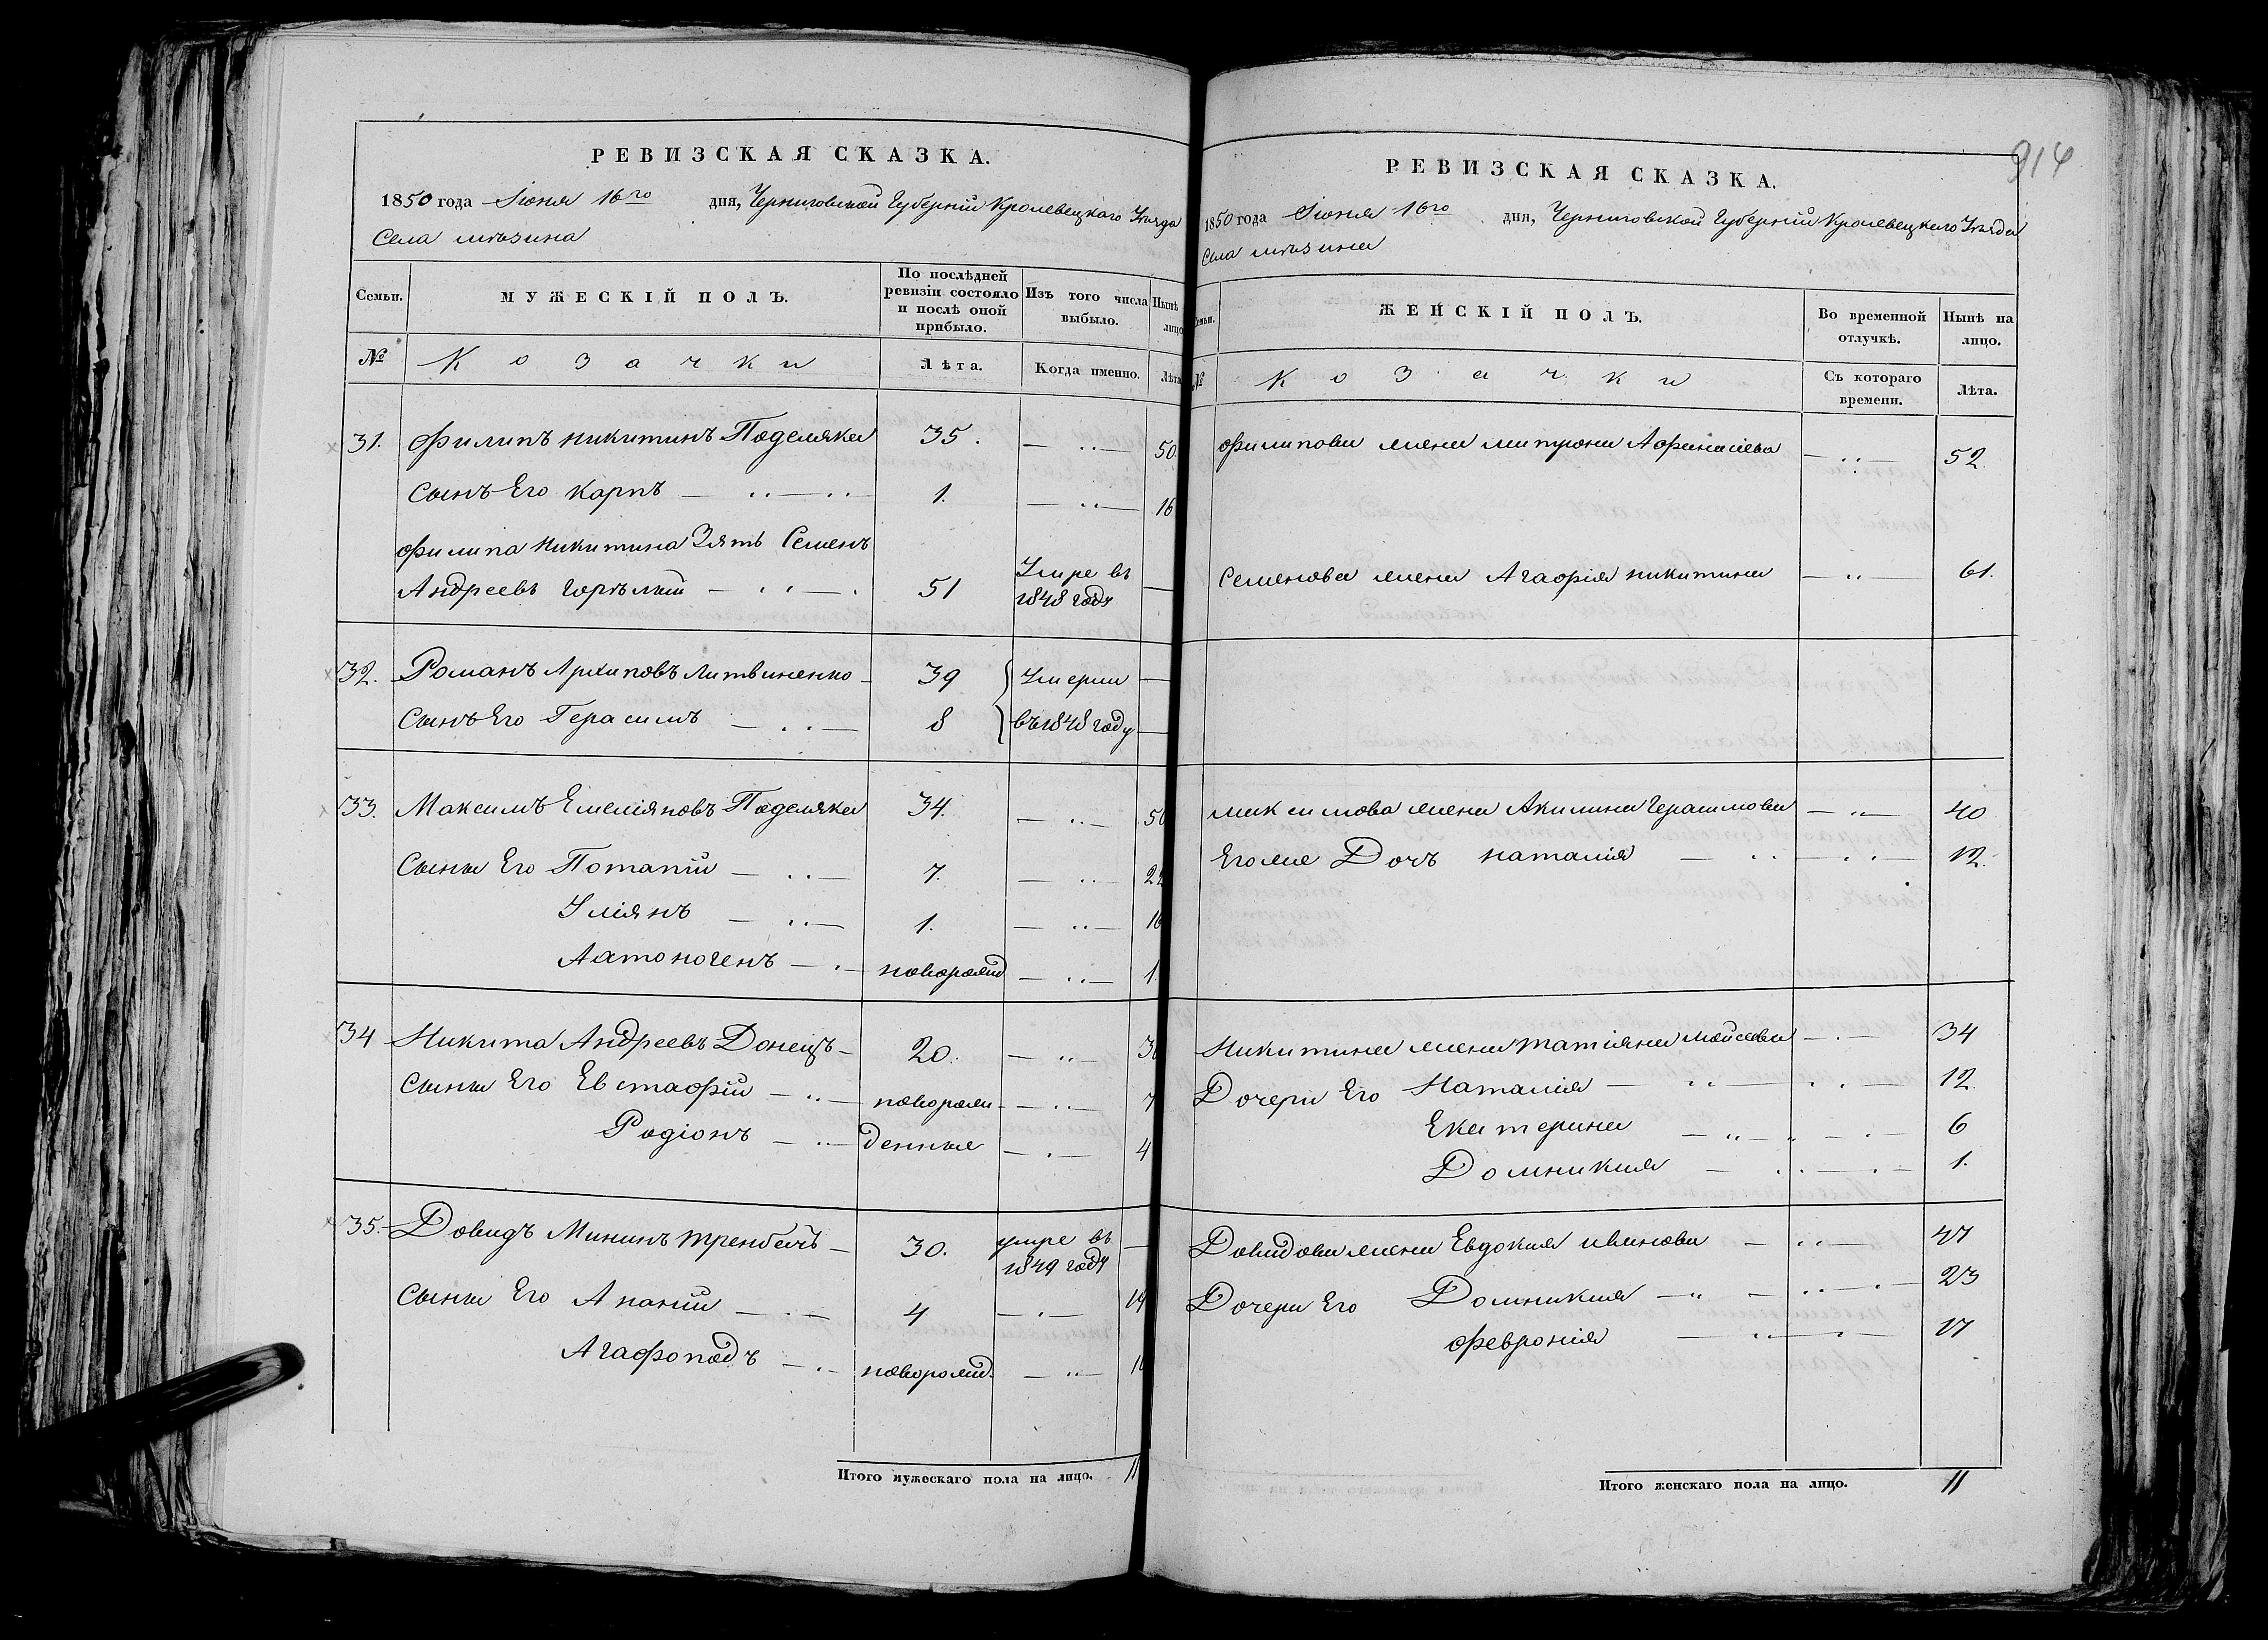 РЕВИЗСКАЯ СКАЗКА.
1850 года Іюня 16го дня, Черниговской Губерніи Кролевецкаго Уѣзда
Села мѣзина
Семьи. МУЖЕСКІЙ ПОЛЪ. По послѣдней ревизіи состояло и послѣ оной прибыло. Изъ того числа выбыло. Нынѣ лицо
№ Козачки Лѣта. Когда именно. Лѣта
31. Филипъ никитинъ Поделяка 35. — 〃 — 50.
Сынъ Его Карпъ — 〃 — 〃 1. — 〃 — 16
Филипа никитина Зять Семенъ
Андреевъ горѣлый — 〃 — 51 Умре въ 1848 году —
32. Романъ Архиповъ литвиненко — 39 } Умерли —
Сынъ Его Герасимъ — 〃 — 8 } въ 1848 году —
33. Максимъ Емеліяновъ Поделяка 34. — 〃 — 50
Сыны Его Потапій — 〃 — 7. — 〃 — 22
Уліянъ — 〃 — 1. — 〃 — 16
Автоногенъ — 〃 — новорожд — 〃 — 1
34 Никита Андреевъ Донецъ — 20. — 〃 — 3
Сыны Его Евстафій — 〃 — новорож- — 〃 — 7
Родіонъ — 〃 — денные — 〃 — 4
35. Довидъ Мининъ тренбачъ — 30. умре въ 1849 году —
Сыны Его Ананій — 〃 — 4 — 〃 — 19
Агафоподъ — 〃 — новорожд. — 〃 — 1
Итого мужескаго пола на лицо. 11
914
РЕВИЗСКАЯ СКАЗКА.
1850 года Іюня 16го дня, Черниговской Губерніи Кролевецкаго Уѣзда
Села мѣзина
Семьи. ЖЕНСКІЙ ПОЛЪ. Во временной отлучкѣ. Нынѣ на лицо.
№ Козачки Съ котораго времени. Лѣта.
Филипова жена митрона Афанасіева — 〃 — 52.
Семенова жена Агафія никитина — 〃 — 61.
максимова жена Акилина герасимова — 〃 — 40
Его же Дочь наталія — 〃 — 〃 — 12.
Никитина жена татіяна мойсеева — 〃 — 34
Дочери Его Наталія — 〃 — 〃 — 12
Екатерина — 〃 — 〃 — 6
Домникія — 〃 — 〃 — 1.
Довидова жена Евдокия иванова — 〃 — 47
Дочери Его Домникия — 〃 — 〃 — 23
феврония — 〃 — 〃 — 17
Итого женскаго пола на лицо. 11